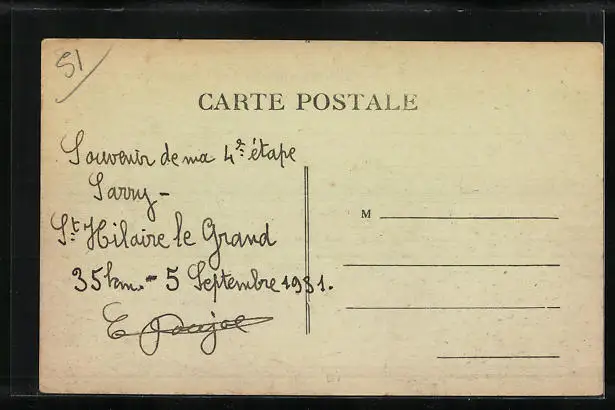 51
CARTE POSTALE
Souvenir de ma 4e étape
Sarry -
St Hilaire le Grand
35 km. - 5 Septembre 1931.
E
M